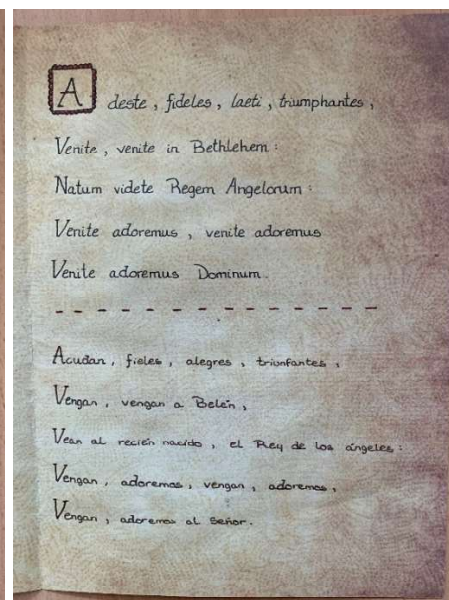 Adeste, fideles, laeti, triumphantes,
Venite, venite in Bethlehem:
Natum videte Regem Angelorum:
Venite adoremus, venite adoremus
Venite adoremus Dominum.
Acudan, fieles, alegres, triunfantes,
Vengan, vengan a Belén,
Vean al recién nacido, el Rey de los ángeles:
Vengan, adoremos, vengan, adoremos,
Vengan, adoremos al Señor.